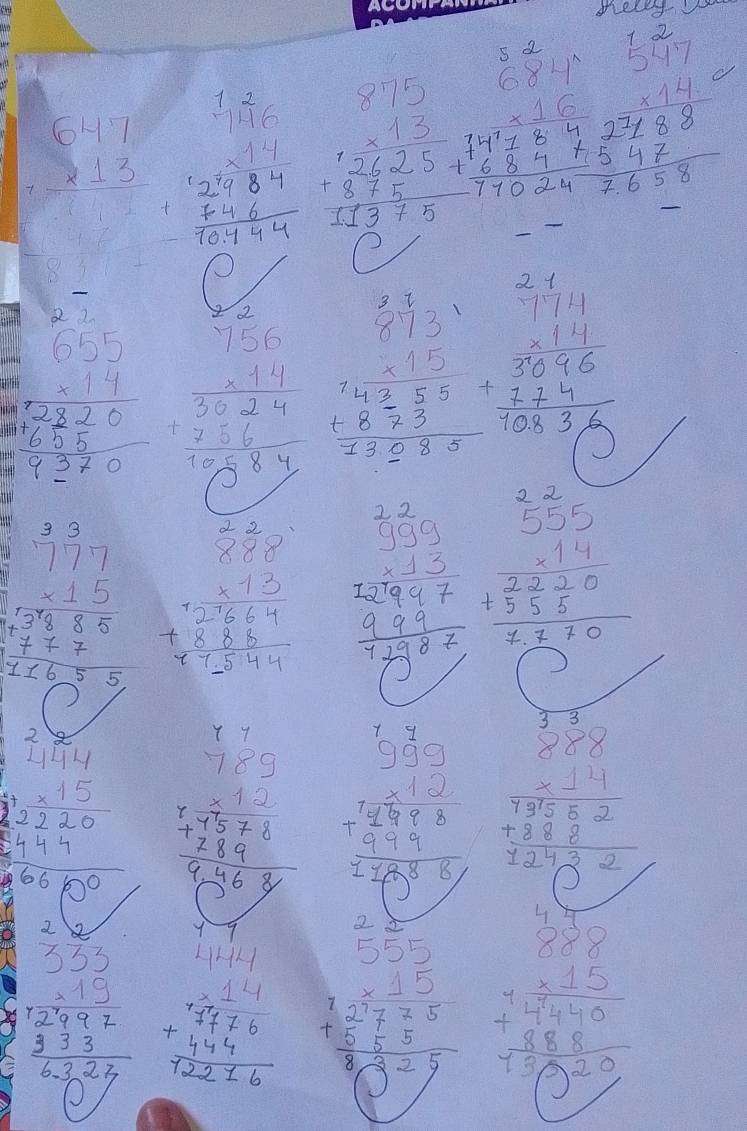 647
×13
746
×14
2984
+746
10.444
875
×13
2625
+875
11375
684
×16
+684
11024
547
×14
2188
+547
7.658
655
×14
2820
+655
9370
756
×14
3024
+756
10584
873
×15
4355
+873
13.085
774
×14
3096
+774
10.836
777
×15
3885
+777
11655
888
×13
2664
+888
11.544
999
×13
2997
999
12987
555
×14
2220
+555
7.770
444
×15
2220
444
6660
789
×12
1578
+789
9.468
999
×12
1998
+999
11988
888
×14
+888
12432
333
×19
2997
333
6.327
444
×14
1776
+444
12216
555
×15
2775
+555
8325
888
×15
4440
+888
13320